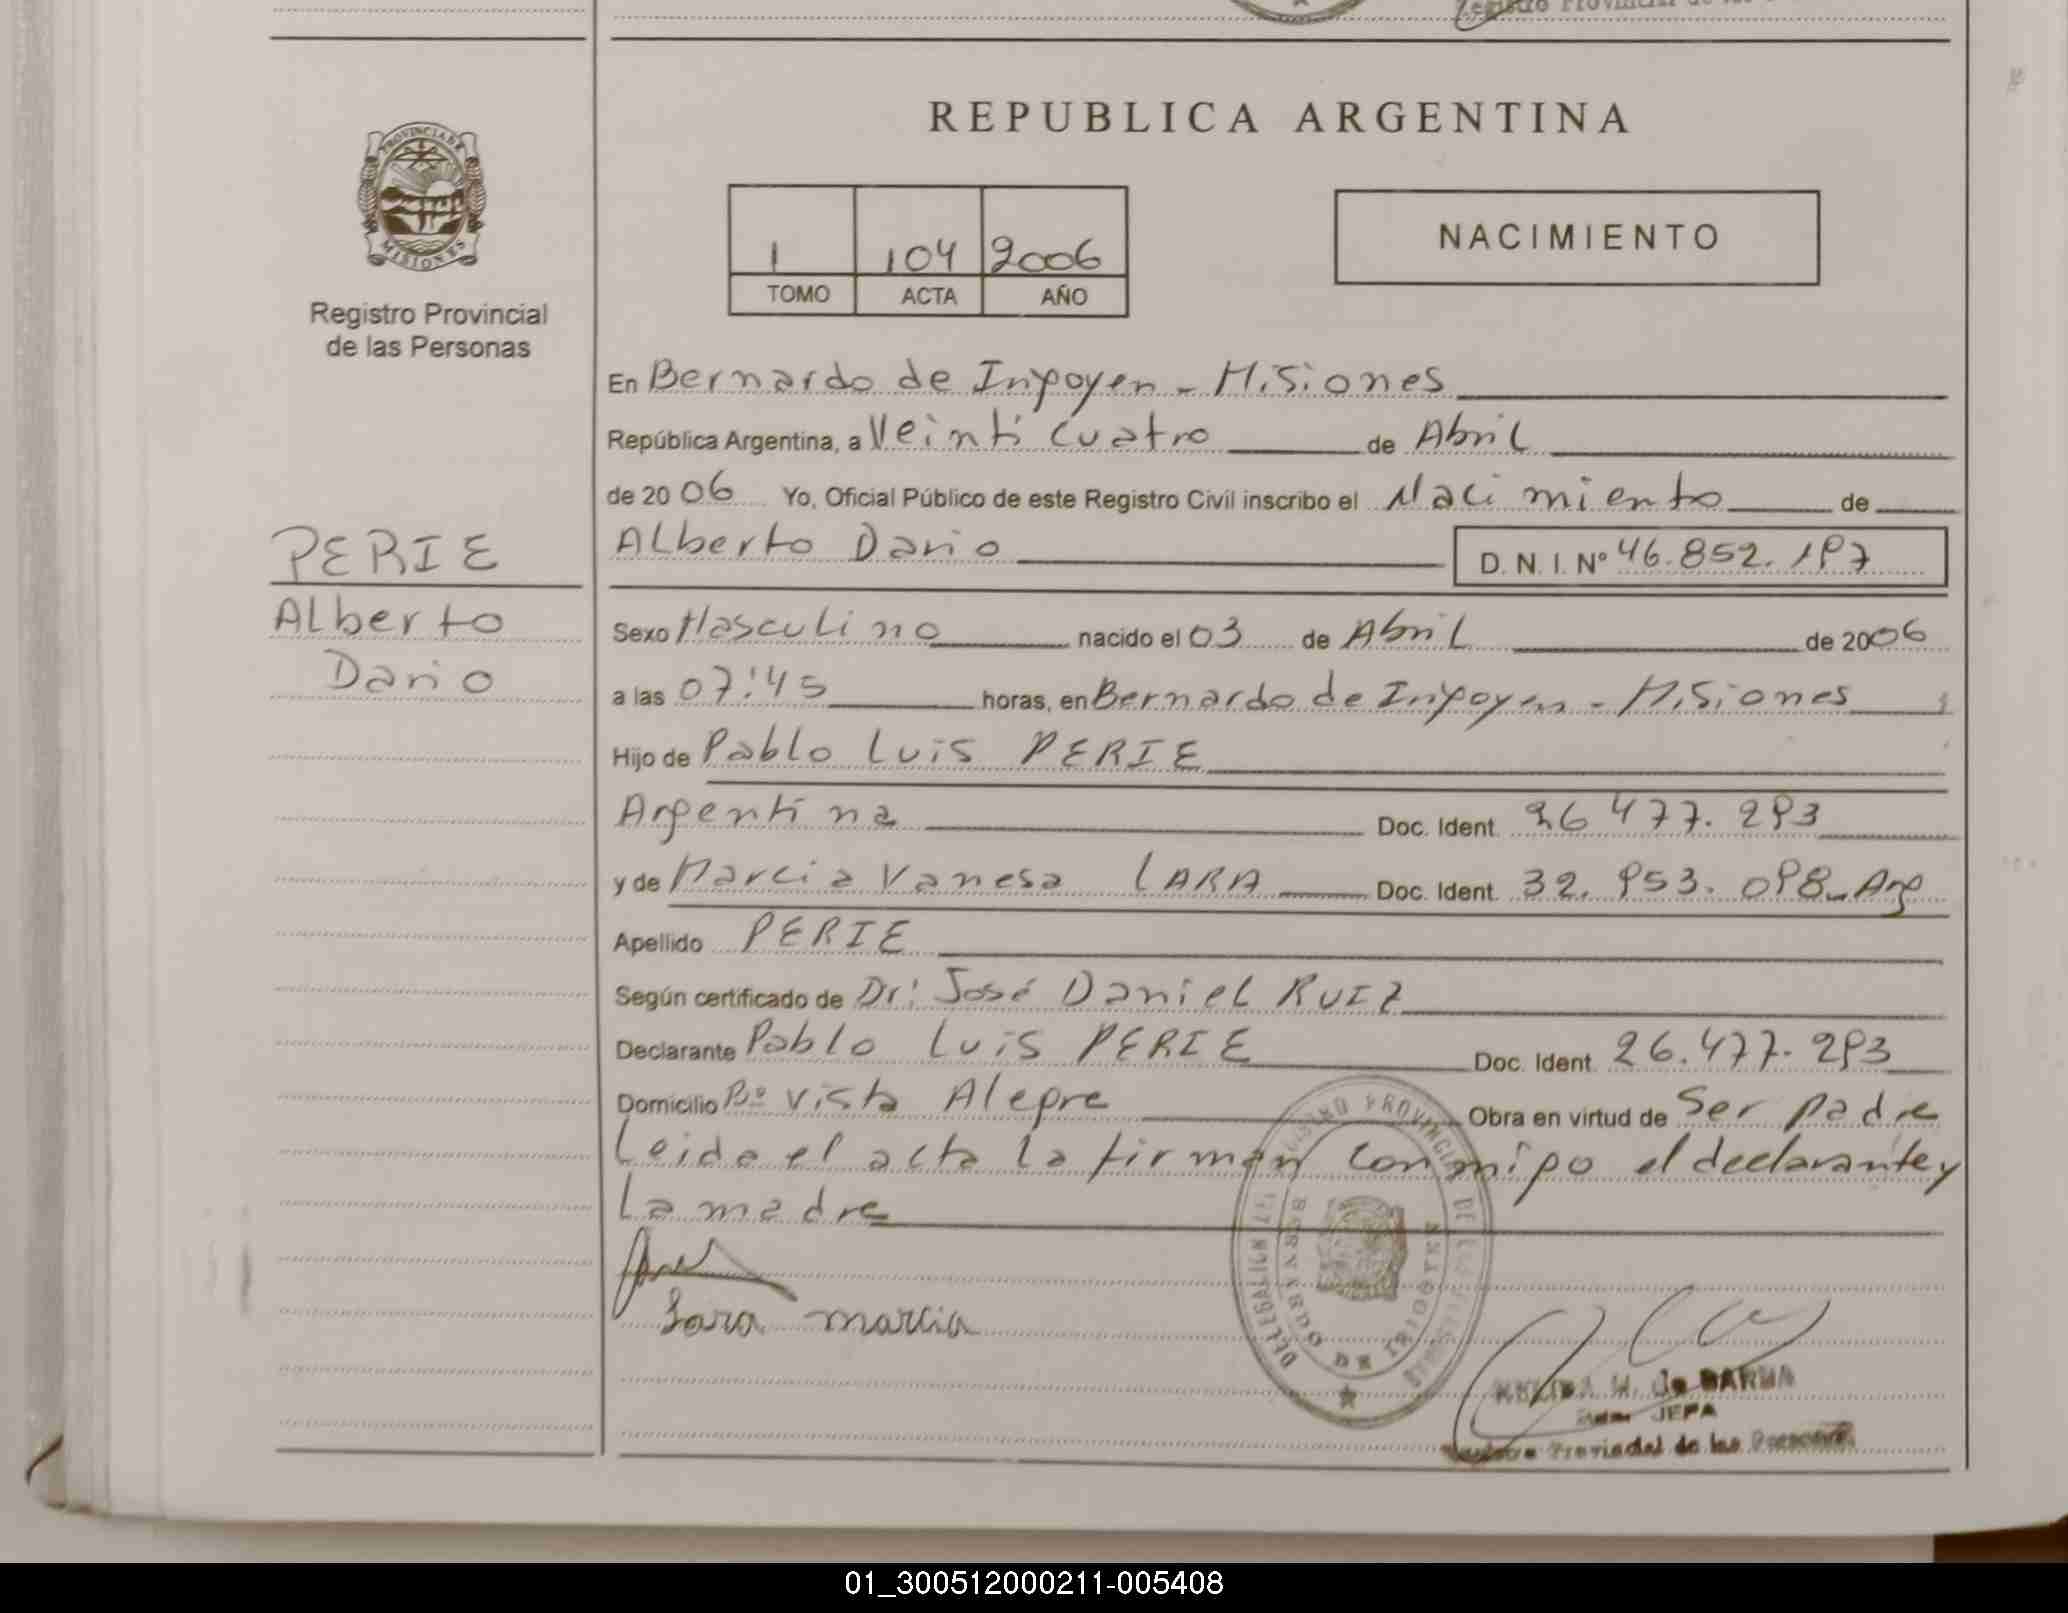 REPUBLICA ARGENTINA
PROVINCIA DE MISIONES
Registro Provincial
de las Personas
1 104 2006
TOMO ACTA AÑO
NACIMIENTO
En Bernardo de Irigoyen - Misiones
República Argentina, a Veinti cuatro de Abril
de 2006 Yo, Oficial Público de este Registro Civil inscribo el Nacimiento de
PERIE
Alberto
Dario
Alberto Dario D. N. I. Nº 46.852.197
Sexo Masculino nacido el 03 de Abril de 2006
a las 07:45 horas, en Bernardo de Irigoyen - Misiones
Hijo de Pablo Luis PERIE
Argentina Doc. Ident. 26.477.293
y de Marcia Vanesa LARA Doc. Ident. 32.953.098 - Arg
Apellido PERIE
Según certificado de Dr: José Daniel RUIZ
Declarante Pablo Luis PERIE Doc. Ident. 26.477.293
Domicilio Bº Vista Alegre Obra en virtud de Ser padre
Leida el acta la firman conmigo el declarante y
la madre
Lara marcia
REGISTRO PROVINCIAL DE LAS PERSONAS
DELEGACION
BERNARDO DE IRIGOYEN
de BARNA
JEFA
Registro Provincial de las Personas
01_300512000211-005408